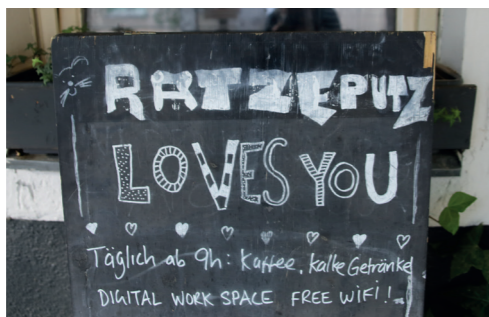 RATZEPUTZ
LOVES YOU
Täglich ab 9h: Kaffee, kalte Getränke
DIGITAL WORK SPACE FREE WiFi!